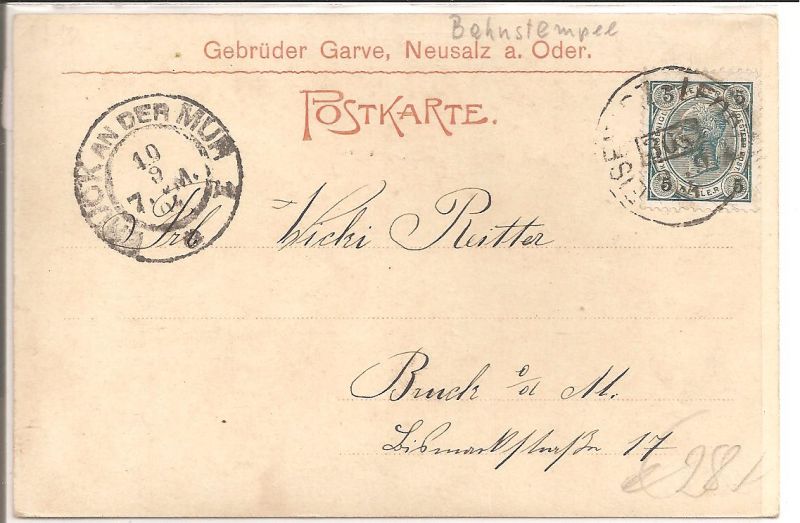 Bahnstempel
Gebrüder Garve, Neusalz a. Oder.
POSTKARTE.
BRUCK AN DER MUR
10
9
7
5 5
5 HELLER 5
Wicki Reitter
Bruck a/d M.
Bismarckstraße 17
€ 28,-